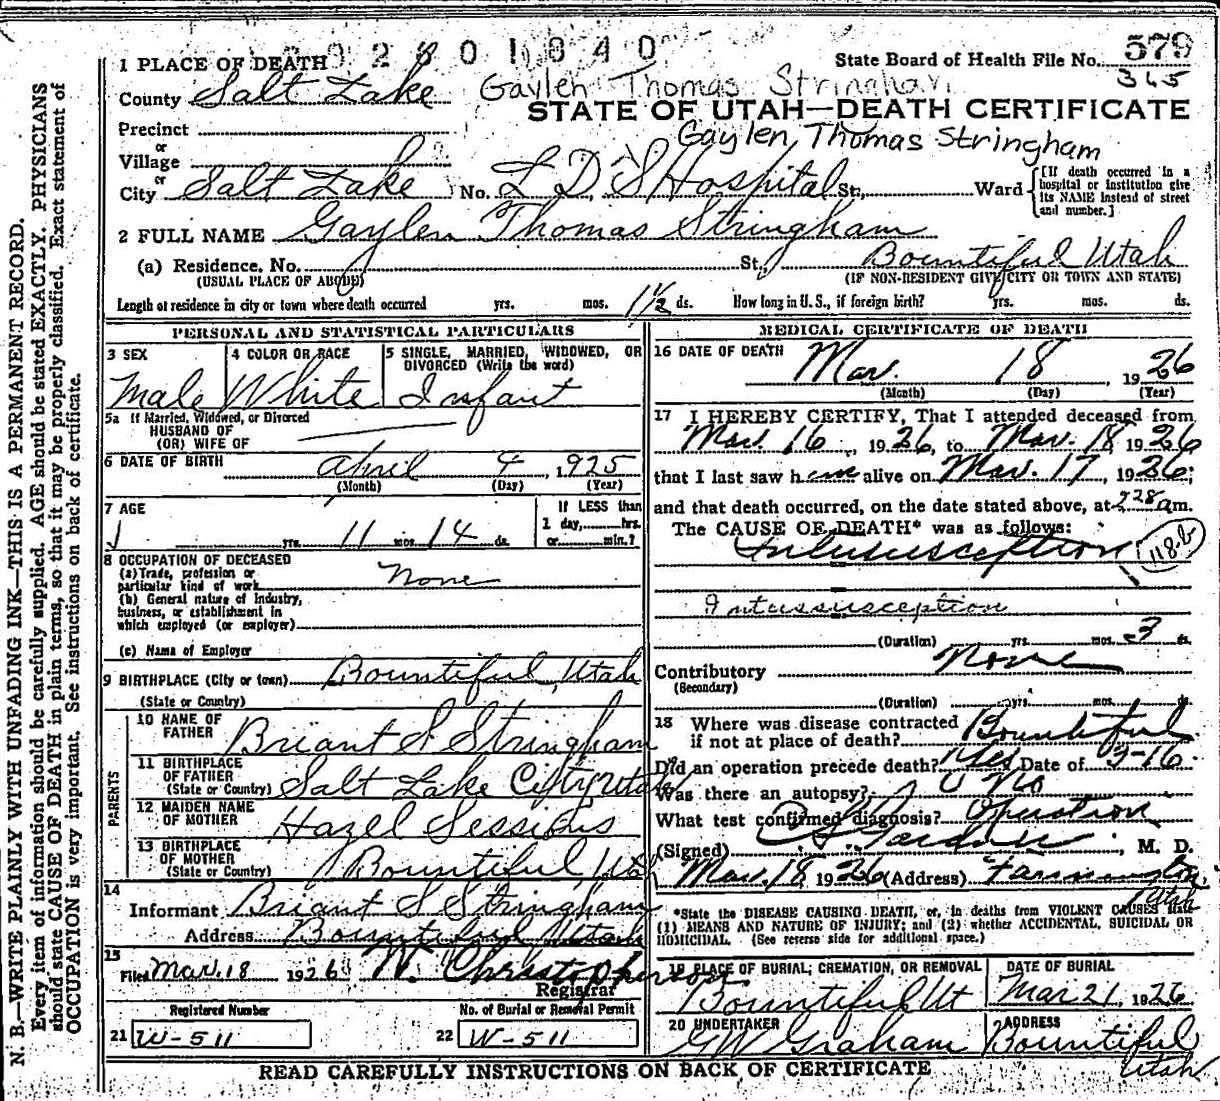 0 9 2 6 0 1 8 4 0
579
1 PLACE OF DEATH
State Board of Health File No.
365
County Salt Lake
Gaylen Thomas Stringham
STATE OF UTAH—DEATH CERTIFICATE
Precinct
Gaylen Thomas Stringham
or
Village
or
City Salt Lake No. L D S Hospital St., Ward
[If death occurred in a
hospital or institution give
its NAME instead of street
and number.]
2 FULL NAME Gaylen Thomas Stringham
(a) Residence. No. St., Bountiful Utah
(USUAL PLACE OF ABODE) (IF NON-RESIDENT GIVE CITY OR TOWN AND STATE)
Length of residence in city or town where death occurred yrs. mos. 1½ ds. How long in U. S., if foreign birth? yrs. mos. ds.
PERSONAL AND STATISTICAL PARTICULARS
3 SEX
Male
4 COLOR OR RACE
White
5 SINGLE, MARRIED, WIDOWED, OR
DIVORCED (Write the word)
Infant
5a If Married, Widowed, or Divorced
HUSBAND OF
(OR) WIFE OF
6 DATE OF BIRTH April 4, 1925
(Month) (Day) (Year)
7 AGE
yrs. 11 mos. 14 ds.
If LESS than
1 day, hrs.
or min.?
8 OCCUPATION OF DECEASED
(a) Trade, profession or
particular kind of work None
(b) General nature of Industry,
business, or establishment in
which employed (or employer)
(c) Name of Employer
9 BIRTHPLACE (City or town) Bountiful, Utah
(State or Country)
PARENTS
10 NAME OF
FATHER Briant S Stringham
11 BIRTHPLACE
OF FATHER
(State or Country) Salt Lake City Utah
12 MAIDEN NAME
OF MOTHER Hazel Sessions
13 BIRTHPLACE
OF MOTHER
(State or Country) Bountiful, Utah
14
Informant Briant S Stringham
Address Bountiful Utah
15
Filed Mar. 18 1926 W. Christopherson
Registrar
Registered Number
21 W-511
No. of Burial or Removal Permit
22 W-511
MEDICAL CERTIFICATE OF DEATH
16 DATE OF DEATH Mar. 18, 1926
(Month) (Day) (Year)
17 I HEREBY CERTIFY, That I attended deceased from
Mar. 16, 1926, to Mar. 18, 1926
that I last saw h im alive on Mar. 17, 1926;
and that death occurred, on the date stated above, at 228 a m.
The CAUSE OF DEATH* was as follows:
Intussusception 118.b
Intussusception
(Duration) yrs. mos. 3 ds.
Contributory None
(Secondary)
(Duration) yrs. mos. ds.
18 Where was disease contracted
if not at place of death? Bountiful
Did an operation precede death? Yes Date of 3-16
Was there an autopsy? No
What test confirmed diagnosis? Operation
(Signed) Gardner, M. D.
Mar. 18 1926 (Address) Farmington,
Utah
*State the DISEASE CAUSING DEATH, or, in deaths from VIOLENT CAUSES state
(1) MEANS AND NATURE OF INJURY; and (2) whether ACCIDENTAL, SUICIDAL OR
HOMICIDAL. (See reverse side for additional space.)
19 PLACE OF BURIAL, CREMATION, OR REMOVAL
Bountiful Ut
DATE OF BURIAL
Mar 21, 1926
20 UNDERTAKER
GW Graham
ADDRESS
Bountiful
Utah
READ CAREFULLY INSTRUCTIONS ON BACK OF CERTIFICATE
N. B.—WRITE PLAINLY WITH UNFADING INK—THIS IS A PERMANENT RECORD.
Every item of information should be carefully supplied. AGE should be stated EXACTLY. PHYSICIANS
should state CAUSE OF DEATH in plain terms, so that it may be properly classified. Exact statement of
OCCUPATION is very important. See instructions on back of certificate.